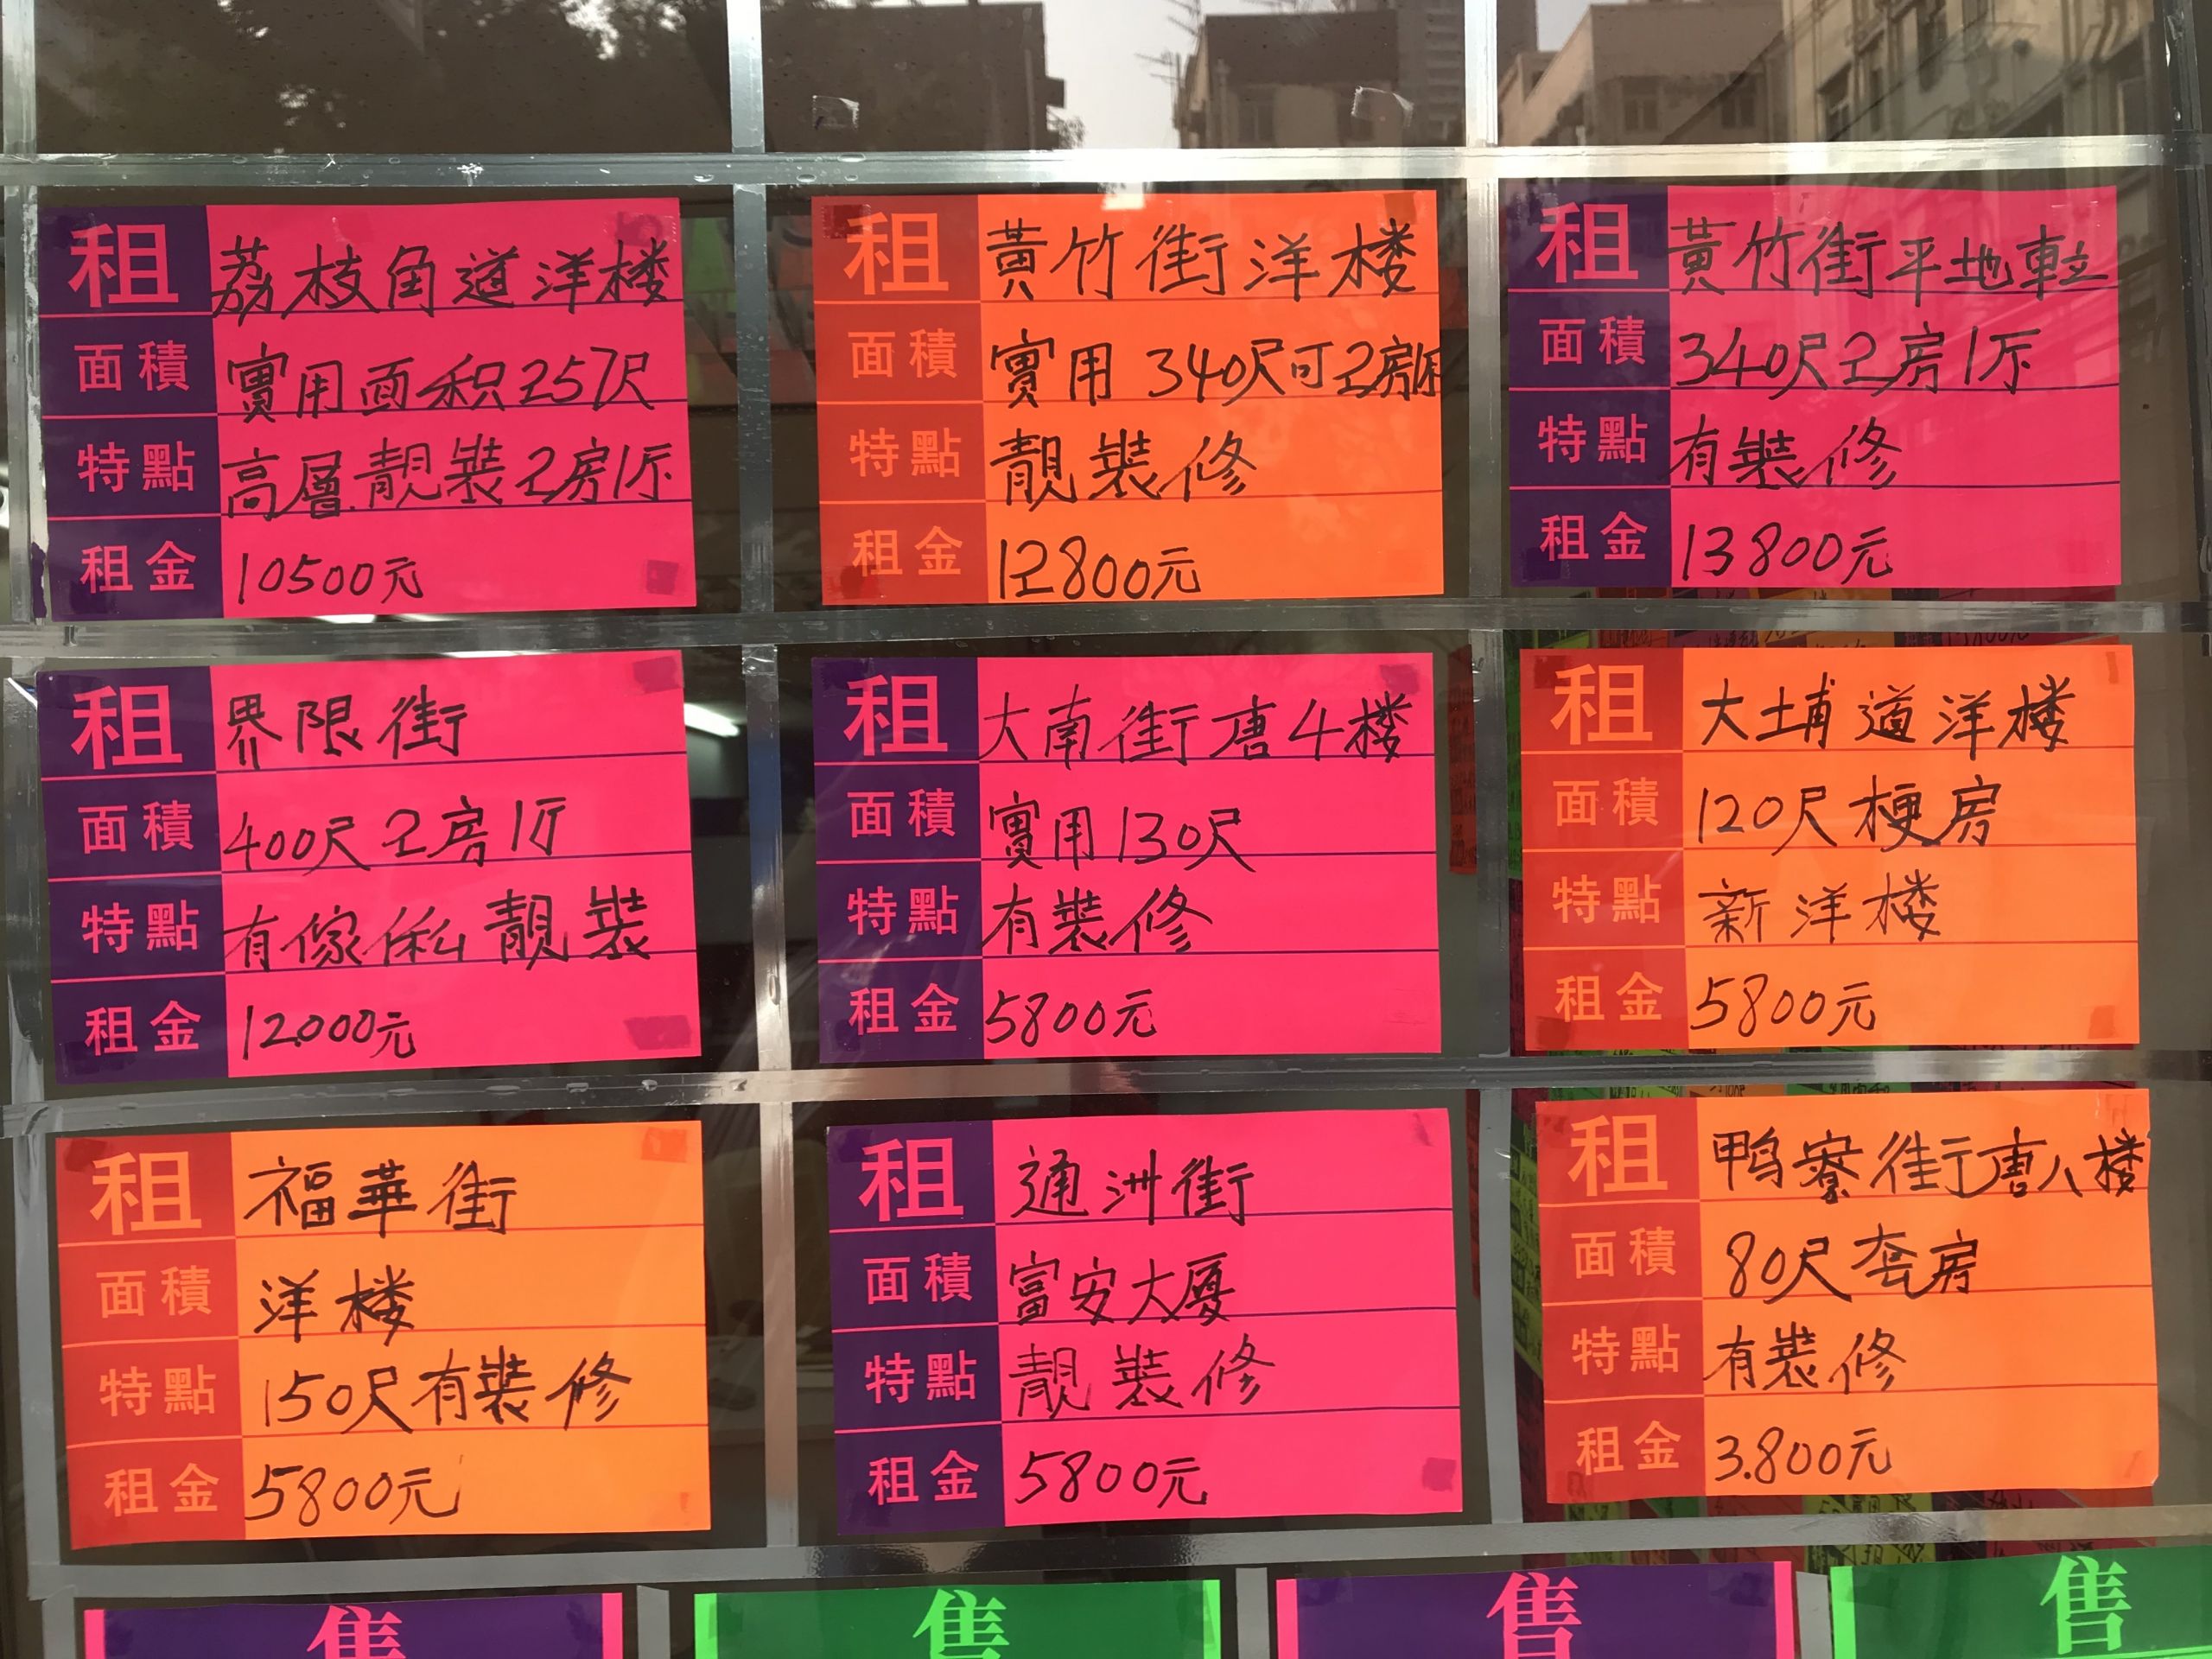 租 荔枝角道洋楼
面積 實用面积257尺
特點 高層.靚装2房1厅
租金 10500元
租 黃竹街洋楼
面積 實用340尺可2房1厅
特點 靚裝修
租金 12800元
租 黃竹街平地䡛
面積 340尺2房1厅
特點 有裝修
租金 13800元
租 界限街
面積 400尺2房1厅
特點 有傢俬靚裝
租金 12000元
租 大南街唐4楼
面積 實用130尺
特點 有裝修
租金 5800元
租 大埔道洋楼
面積 120尺梗房
特點 新洋楼
租金 5800元
租 福華街
面積 洋楼
特點 150尺有裝修
租金 5800元
租 通洲街
面積 富安大厦
特點 靚裝修
租金 5800元
租 鸭寮街唐八楼
面積 80尺套房
特點 有裝修
租金 3.800元
售
售
售
售